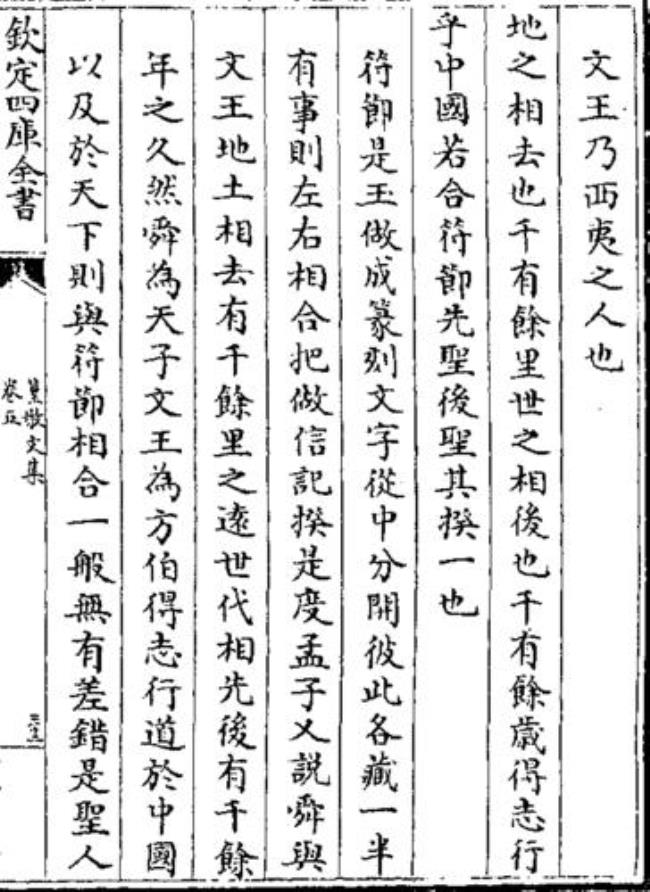 文王乃西夷之人也
地之相去也千有餘里世之相後也千有餘歲得志行
乎中國若合符節先聖後聖其揆一也
符節是玉做成篆刻文字從中分開彼此各藏一半
有事則左右相合把做信記揆是度孟子又說舜與
文王地土相去有千餘里之遠世代相先後有千餘
年之久然舜為天子文王為方伯得志行道於中國
以及於天下則與符節相合一般無有差錯是聖人
欽定四庫全書
篁墩文集
卷五